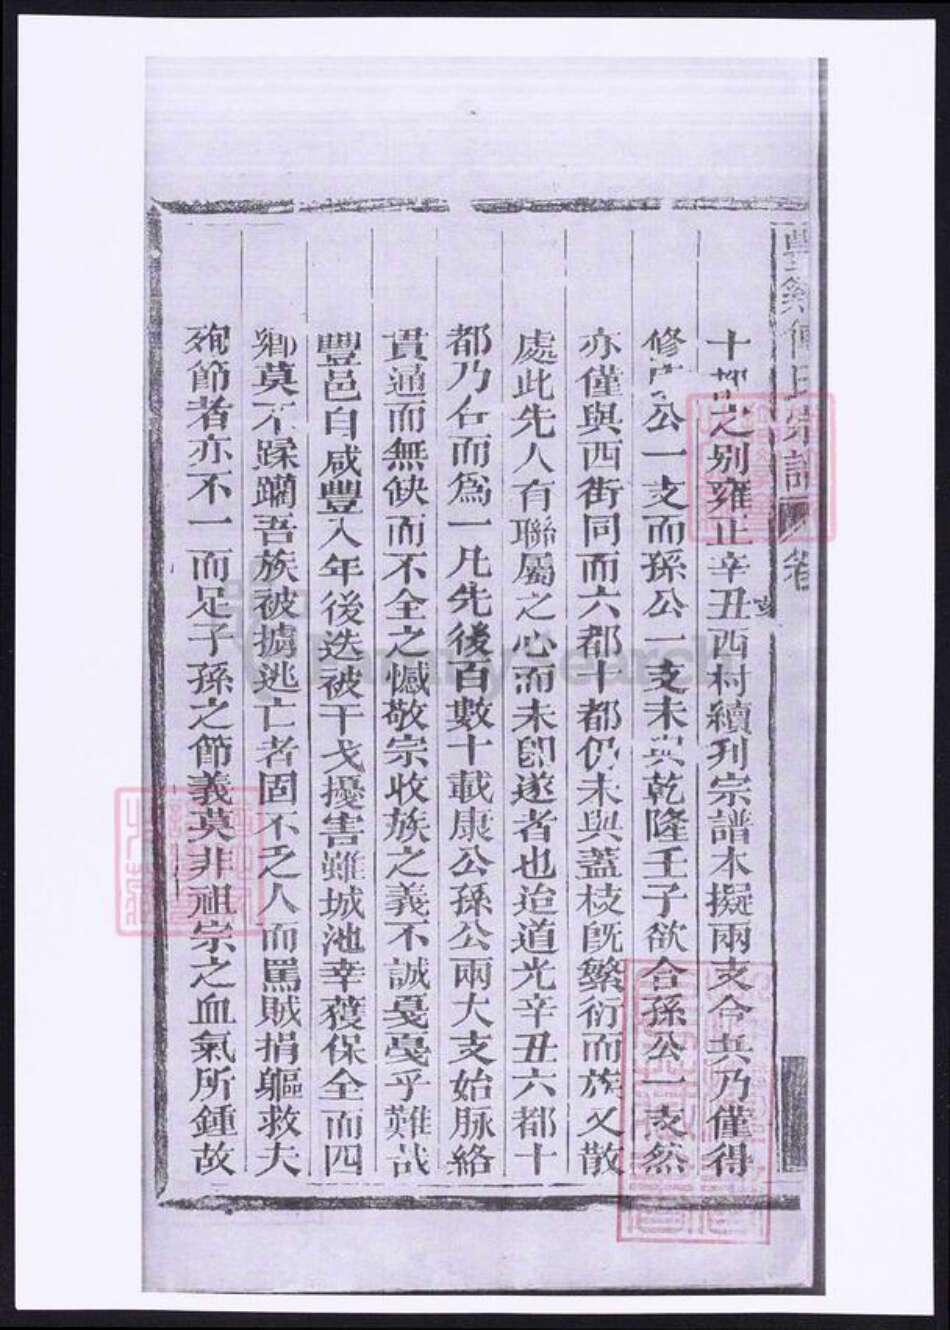 豐谿傅氏宗譜 卷
十都之別雍正辛丑西村續刊宗譜本擬兩支合其乃僅得
修康公一支而孫公一支未與乾隆壬子欲合孫公一支然
亦僅與西街同而六都十都仍未與蓋枝旣繁衍而族又散
處此先人有聯屬之心而未卽遂者也迨道光辛丑六都十
都乃合而爲一凡先後百數十載康公孫公兩大支始脉絡
貫通而無缺而不全之憾敬宗收族之義不誠戞戞乎難哉
豐邑自咸豐八年後迭被干戈擾害雖城池幸獲保全而四
鄉莫不蹂躪吾族被擄逃亡者固不乏人而罵賊捐軀救夫
殉節者亦不一而足子孫之節義莫非祖宗之血氣所鍾故
FamilySearch